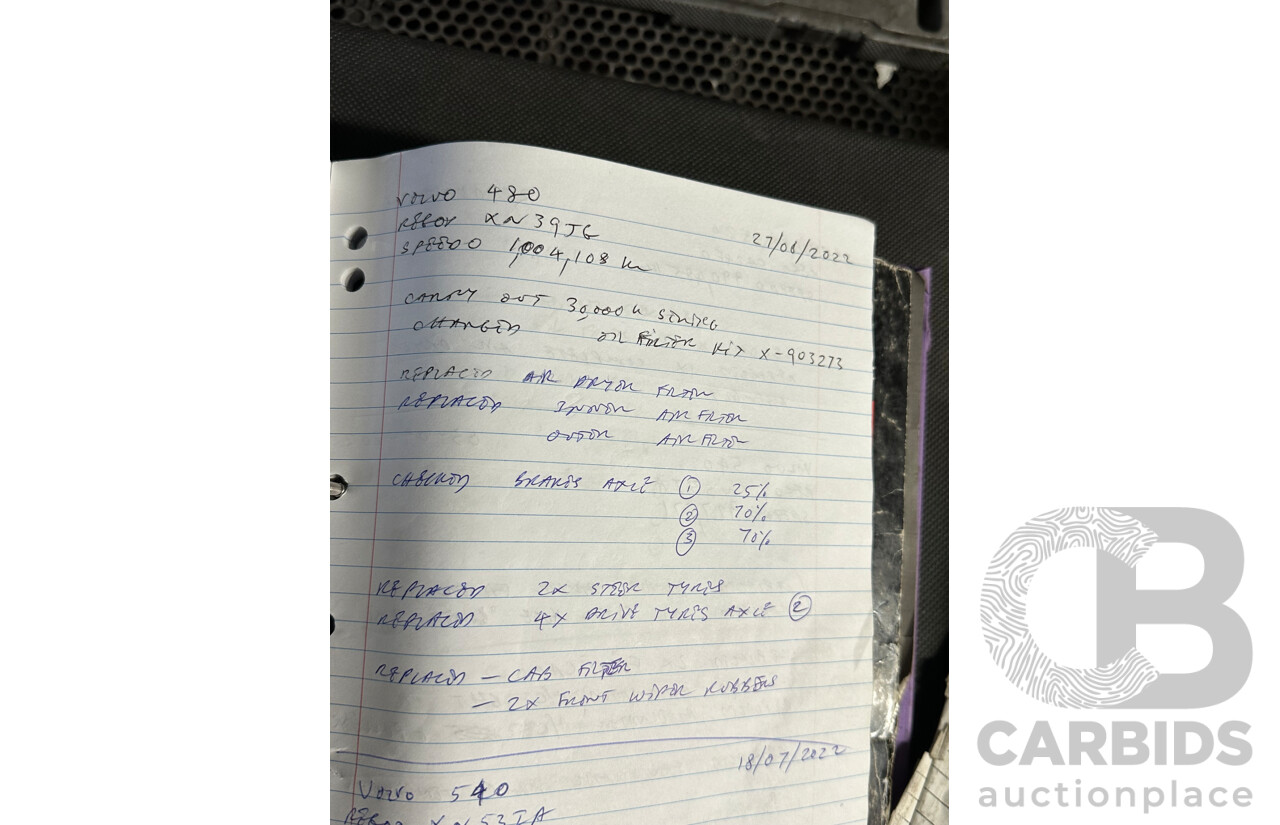 VOLVO 480
REGO XN39JG
27/06/2022
SPEEDO 1,004,108 km
CARRY OUT 30,000 K SERVICE
CHANGED OIL FILTER KIT X-903273
REPLACED AIR DRYER FILTER
REPLACED INNER AIR FILTER
OUTER AIR FILTER
CHECKED BRAKES AXLE ① 25%
② 70%
③ 70%
REPLACED 2X STEER TYRES
REPLACED 4X DRIVE TYRES AXLE ②
REPLACED - CAB FILTER
- 2X FRONT WIPER RUBBERS
18/07/2022
VOLVO 540
REGO XN53IA
CARBIDS
auctionplace